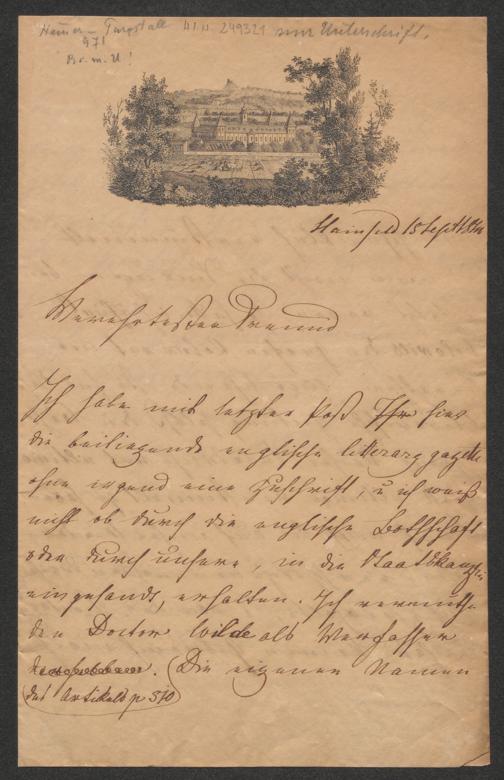 Hammer-Purgstall H.I.N. 249321 nur Unterschrift.
Br. m. U!
Hainfeld 15 Sept
Verehrtester Freund
Ich habe mit letzter Post Ihr hier
die beiliegende englische literary gazette
ohne irgend eine Zuschrift, u ich weiß
nicht ob durch die englische Bothschaft
oder durch unsere, in die Staatskanzlei
eingesandt, erhalten. Ich vermuthe
den Doctor Wilde als Verfasser
(des Artikels p 510) . (Die eigenen Namen